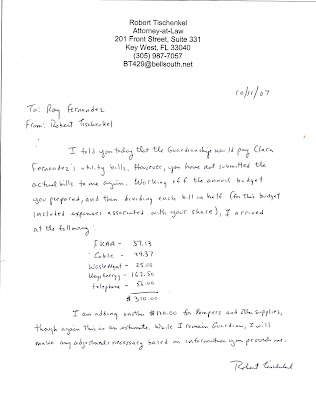 Robert Tischenkel
Attorney-at-Law
201 Front Street, Suite 331
Key West, FL 33040
(305) 987-7057
BT429@bellsouth.net
10/11/07
To: Ray Fernandez
From: Robert Tischenkel
I told you today that the Guardianship would pay Clara
Fernandez's utility bills. However, you have not submitted the
actual bills to me again. Working off the annual budget
you prepared, and then dividing each bill in half (for this budget
included expenses associated with your share), I arrived
at the following:
FKAA - 57.13
Cable - 29.37
Waste Mgmt - 25.00
Keys Energy - 162.50
telephone - 56.00
$ 310.00
I am adding another $120.00 for Pampers and other supplies,
though again this is an estimate. While I remain Guardian, I will
make any adjustments necessary based on information you provide me.
Robert Tischenkel